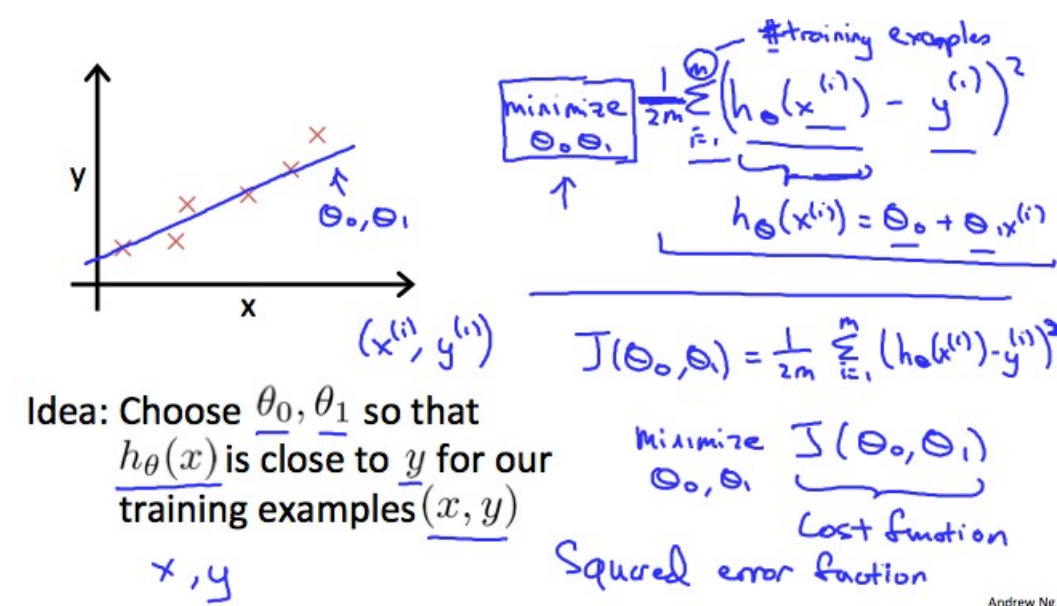 y
x
θ₀, θ₁
(x⁽ⁱ⁾, y⁽ⁱ⁾)
Idea: Choose θ₀, θ₁ so that
h_θ(x) is close to y for our
training examples (x, y)
x, y
#training examples
minimize
θ₀ θ₁
1/2m Σ_{i=1}^{m} (h_θ(x⁽ⁱ⁾) - y⁽ⁱ⁾)²
h_θ(x⁽ⁱ⁾) = θ₀ + θ₁x⁽ⁱ⁾
J(θ₀, θ₁) = 1/2m Σ_{i=1}^{m} (h_θ(x⁽ⁱ⁾) - y⁽ⁱ⁾)²
minimize J(θ₀, θ₁)
θ₀, θ₁
Cost function
Squared error faction
Andrew Ng